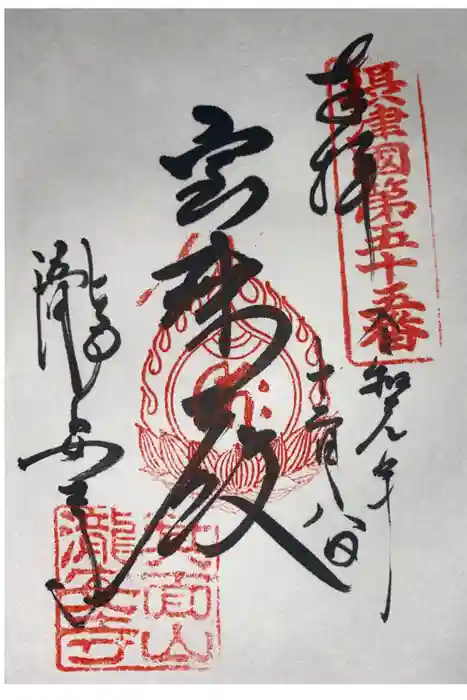 奉拝
摂津國第五十五番
令和元年
十二月八日
宝珠殿
瀧安寺
箕面山
瀧安寺